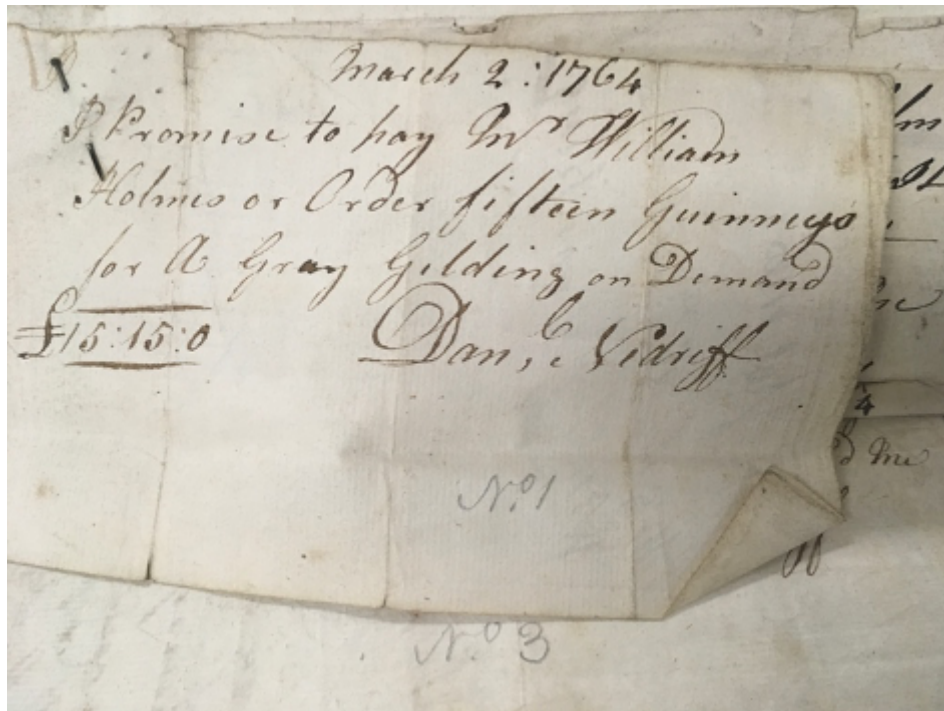 March 2: 1764
I Promise to pay Mr William
Holmes or Order fifteen Guinneys
for A Gray Gilding on Demand
£15:15:0
Danl. Nedriff
No. 1
No 3
4
d me